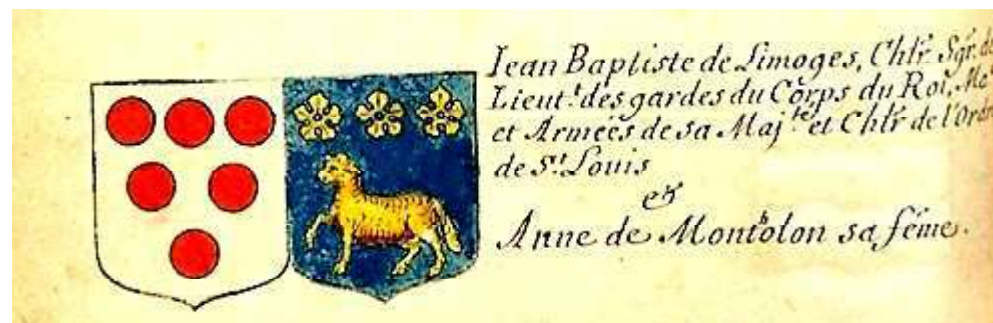 Iean Baptiste de Limoges, Chlr̃ Sgr. de
Lieut.t des gardes du Corps du Roi,
et Armées de sa Maj.te et Chlr̃ de l'Ordre
de S.t Louis
et
Anne de Montholon sa fẽme.